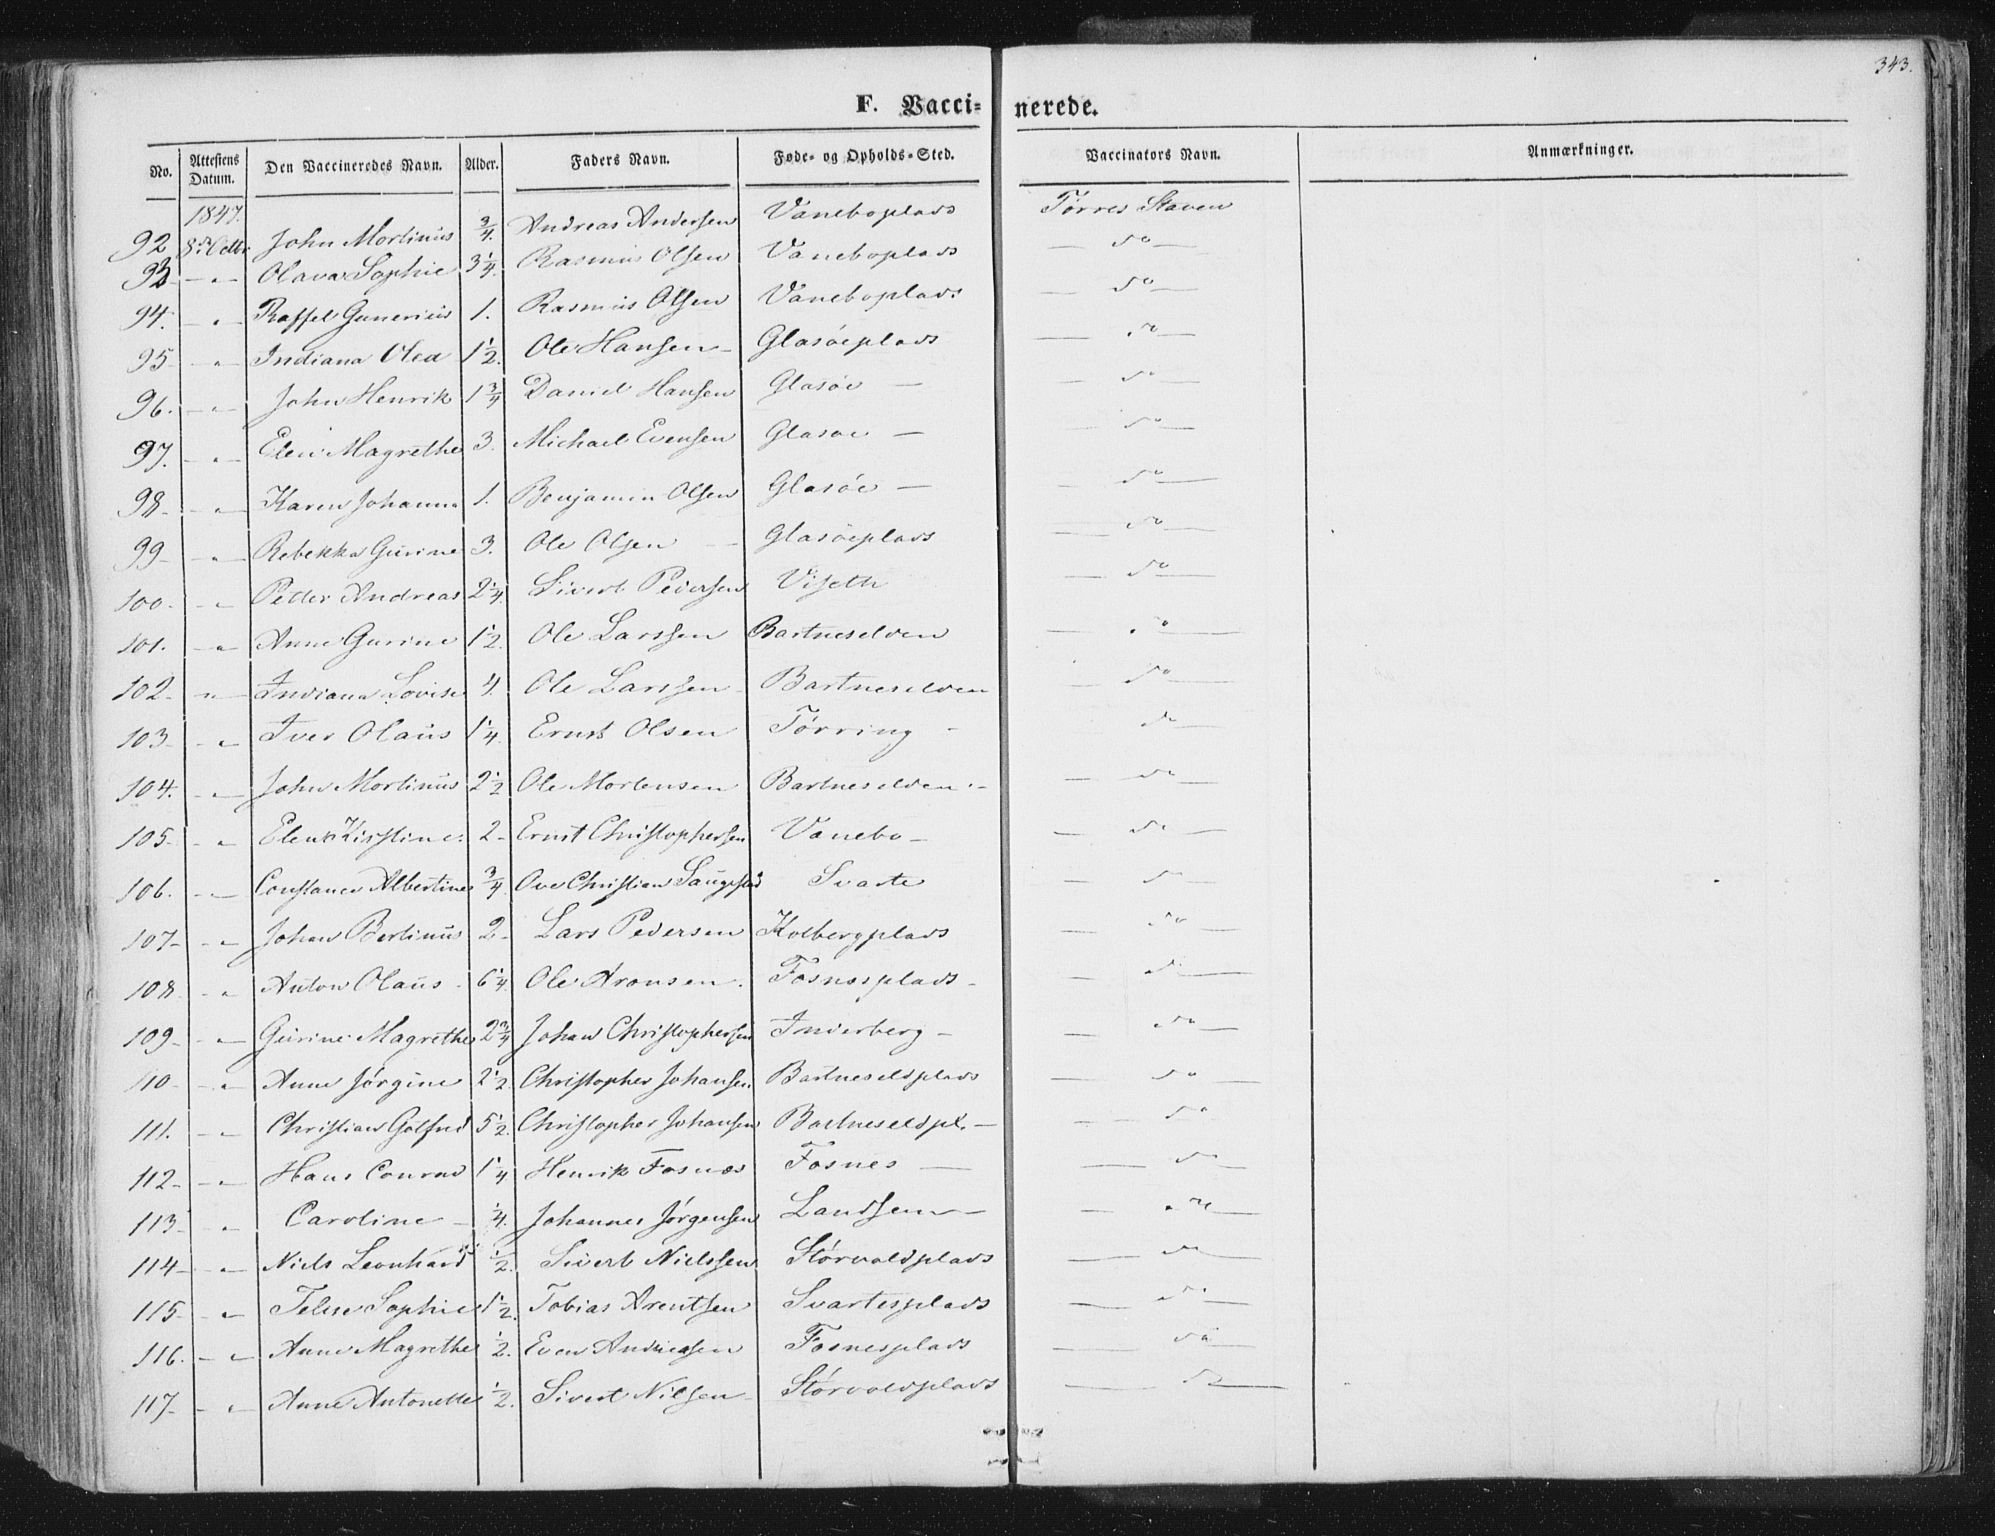 343.
F. Vaccinerede.
No. Attestens Datum. Den Vaccineredes Navn. Alder. Faders Navn. Føde- og Opholds-Sted. Vaccinators Navn. Anmærkninger.
1847.
92 8de Octbr John Mortinus 3/4. Andreas Andersen Vaneboplads Tørres Staven
93 - " - Olava Sophie 3 1/4. Rasmus Olsen Vaneboplads — do —
94. - " - Raffel Gunerius 1. Rasmus Olsen Vaneboplads — do —
95 - " - Indiana Olea 1 1/2. Ole Hansen - Glasøeplads — do —
96. - " - John Henrik 1 3/4 Daniel Hansen Glasøe — — do —
97. - " - Elen Magrethe 3. Michael Evensen Glasøe — — do —
98 - " - Karen Johanna 1. Benjamin Olsen Glasøe — — do —
99 - " - Rebekka Gurine 3. Ole Olsen — Glasøeplads — do —
100. - " Petter Andreas 2 1/4. Sivert Pedersen Viseth — do —
101. - " - Anne Gurine 1 1/2. Ole Larssen Bartneselven — do —
102 - " - Indiana Lovise 4. Ole Larssen - Bartneselven — do —
103 - " - Iver Olaus 1 1/4. Ernst Olsen Tørring - — do —
104. - " - John Mortinus 2 1/2 Ole Mortensen Bartneselven. - — do —
105 - " Elen Kirstine 2 - Ernst Christophersen Vanebo - — do —
106. - " - Constance Albertine 3/4. Ove Christian Saugestad Svarte — do —
107 - " - Johan Bertinus 2 - Lars Pedersen Kolbergplads — do —
108 - " Anton Olaus - 6 1/4. Ole Aronsen. Fosnesplads - — do —
109 - " - Gurine Magrethe 2 3/4 Johan Christophersen Inderberg - — do —
110 - " Anne Jørgine 2 1/2. Christopher Johansen Bartneseldplads — do —
111. - " - Christian Gotfred 5 1/2. Christopher Johansen Bartneseldpl. - — do —
112 - " - Hans Conrad 1 1/4 Henrik Fosnes Fosnes — — do —
113 - " Caroline - 1/4. Johannes Jørgensen Landsem - — do —
114 - " - Niels Leonhard 1/2. Sivert Nielssen Størvoldplads — do —
115 - " - Telise Sophie 1 1/2. Tobias Arentsen Svartesplads — do —
116. - " - Anne Magrethe 1/2. Even Andreasen Fosnesplads — do —
117 - " - Anne Antonette 1/2. Sivert Nilsen - Størvoldplads — do —